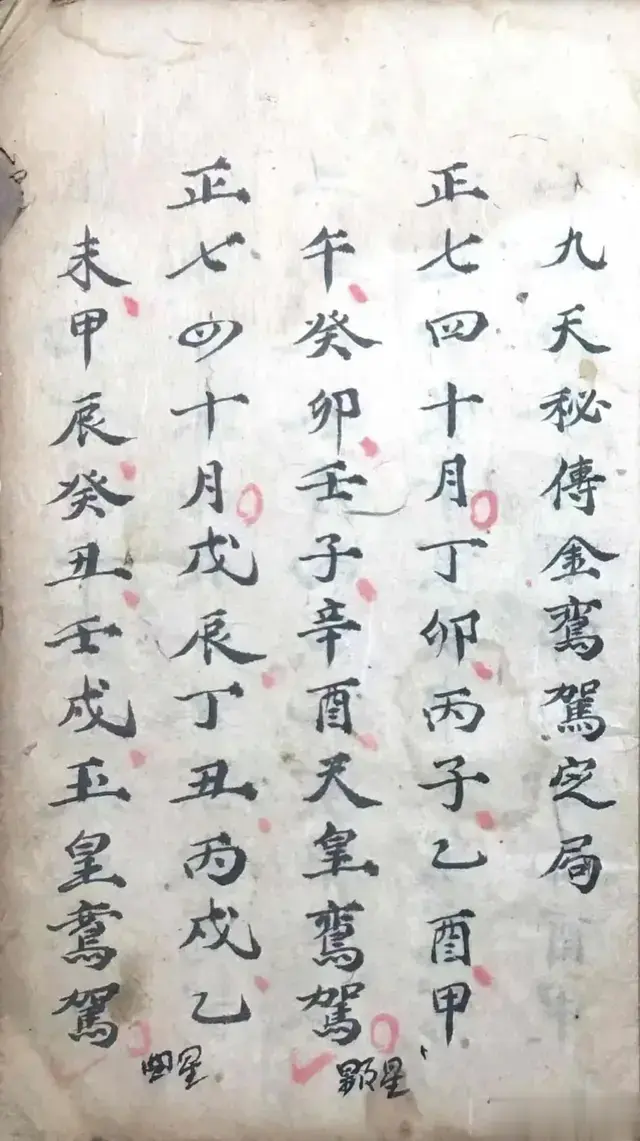 九天秘傳金鵉駕定局
正七四十月丁卯丙子乙酉甲
午癸卯壬子辛酉天皇鵉駕
顕星
正七四十月戊辰丁丑丙戌乙
未甲辰癸丑壬戌玉皇鵉駕
曲星